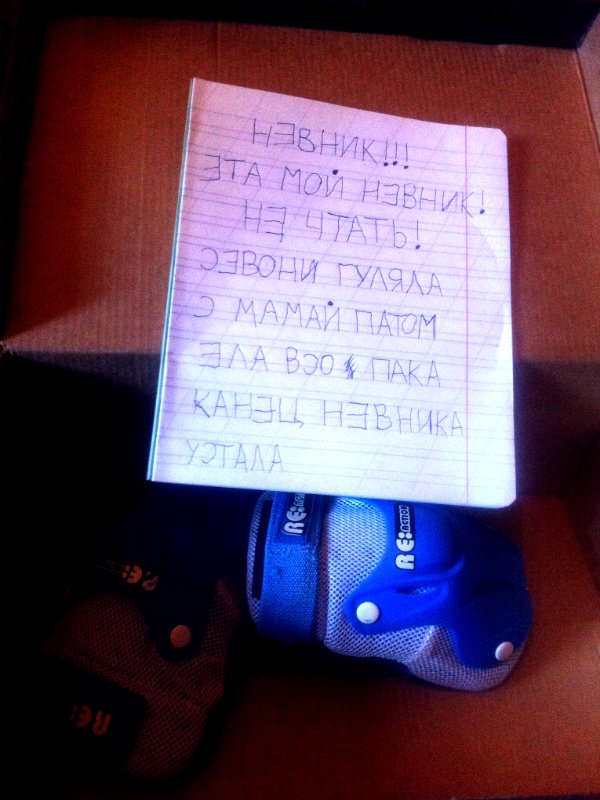 НЭВНИК!!!
ЭТА МОЙ НЭВНИК!
НЕ ЧТАТЬ!
СЕВОНИ ГУЛЯЛА
С МАМАЙ ПАТОМ
ЭЛА ВЗО ПАКА
КАНЕЦ НЭВНИКА
УСТАЛА
RE:ACTION
RE:ACTION
RE:
RE: